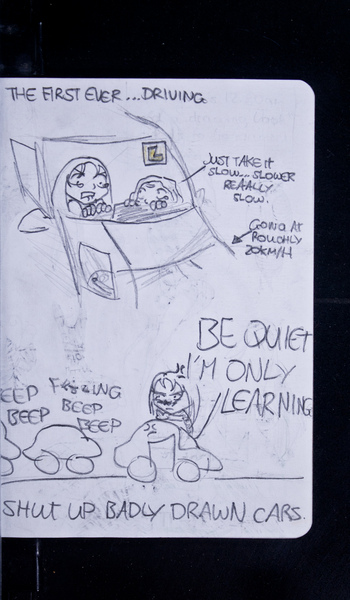 THE FIRST EVER...DRIVING
L
JUST TAKE IT
SLOW... SLOWER
REAALLY
SLOW.
GOING AT
ROUGHLY
20KM/H
BE QUIET
I'M ONLY
LEARNING
EEP
BEEP
F**KING
BEEP
BEEP
SHUT UP BADLY DRAWN CARS.